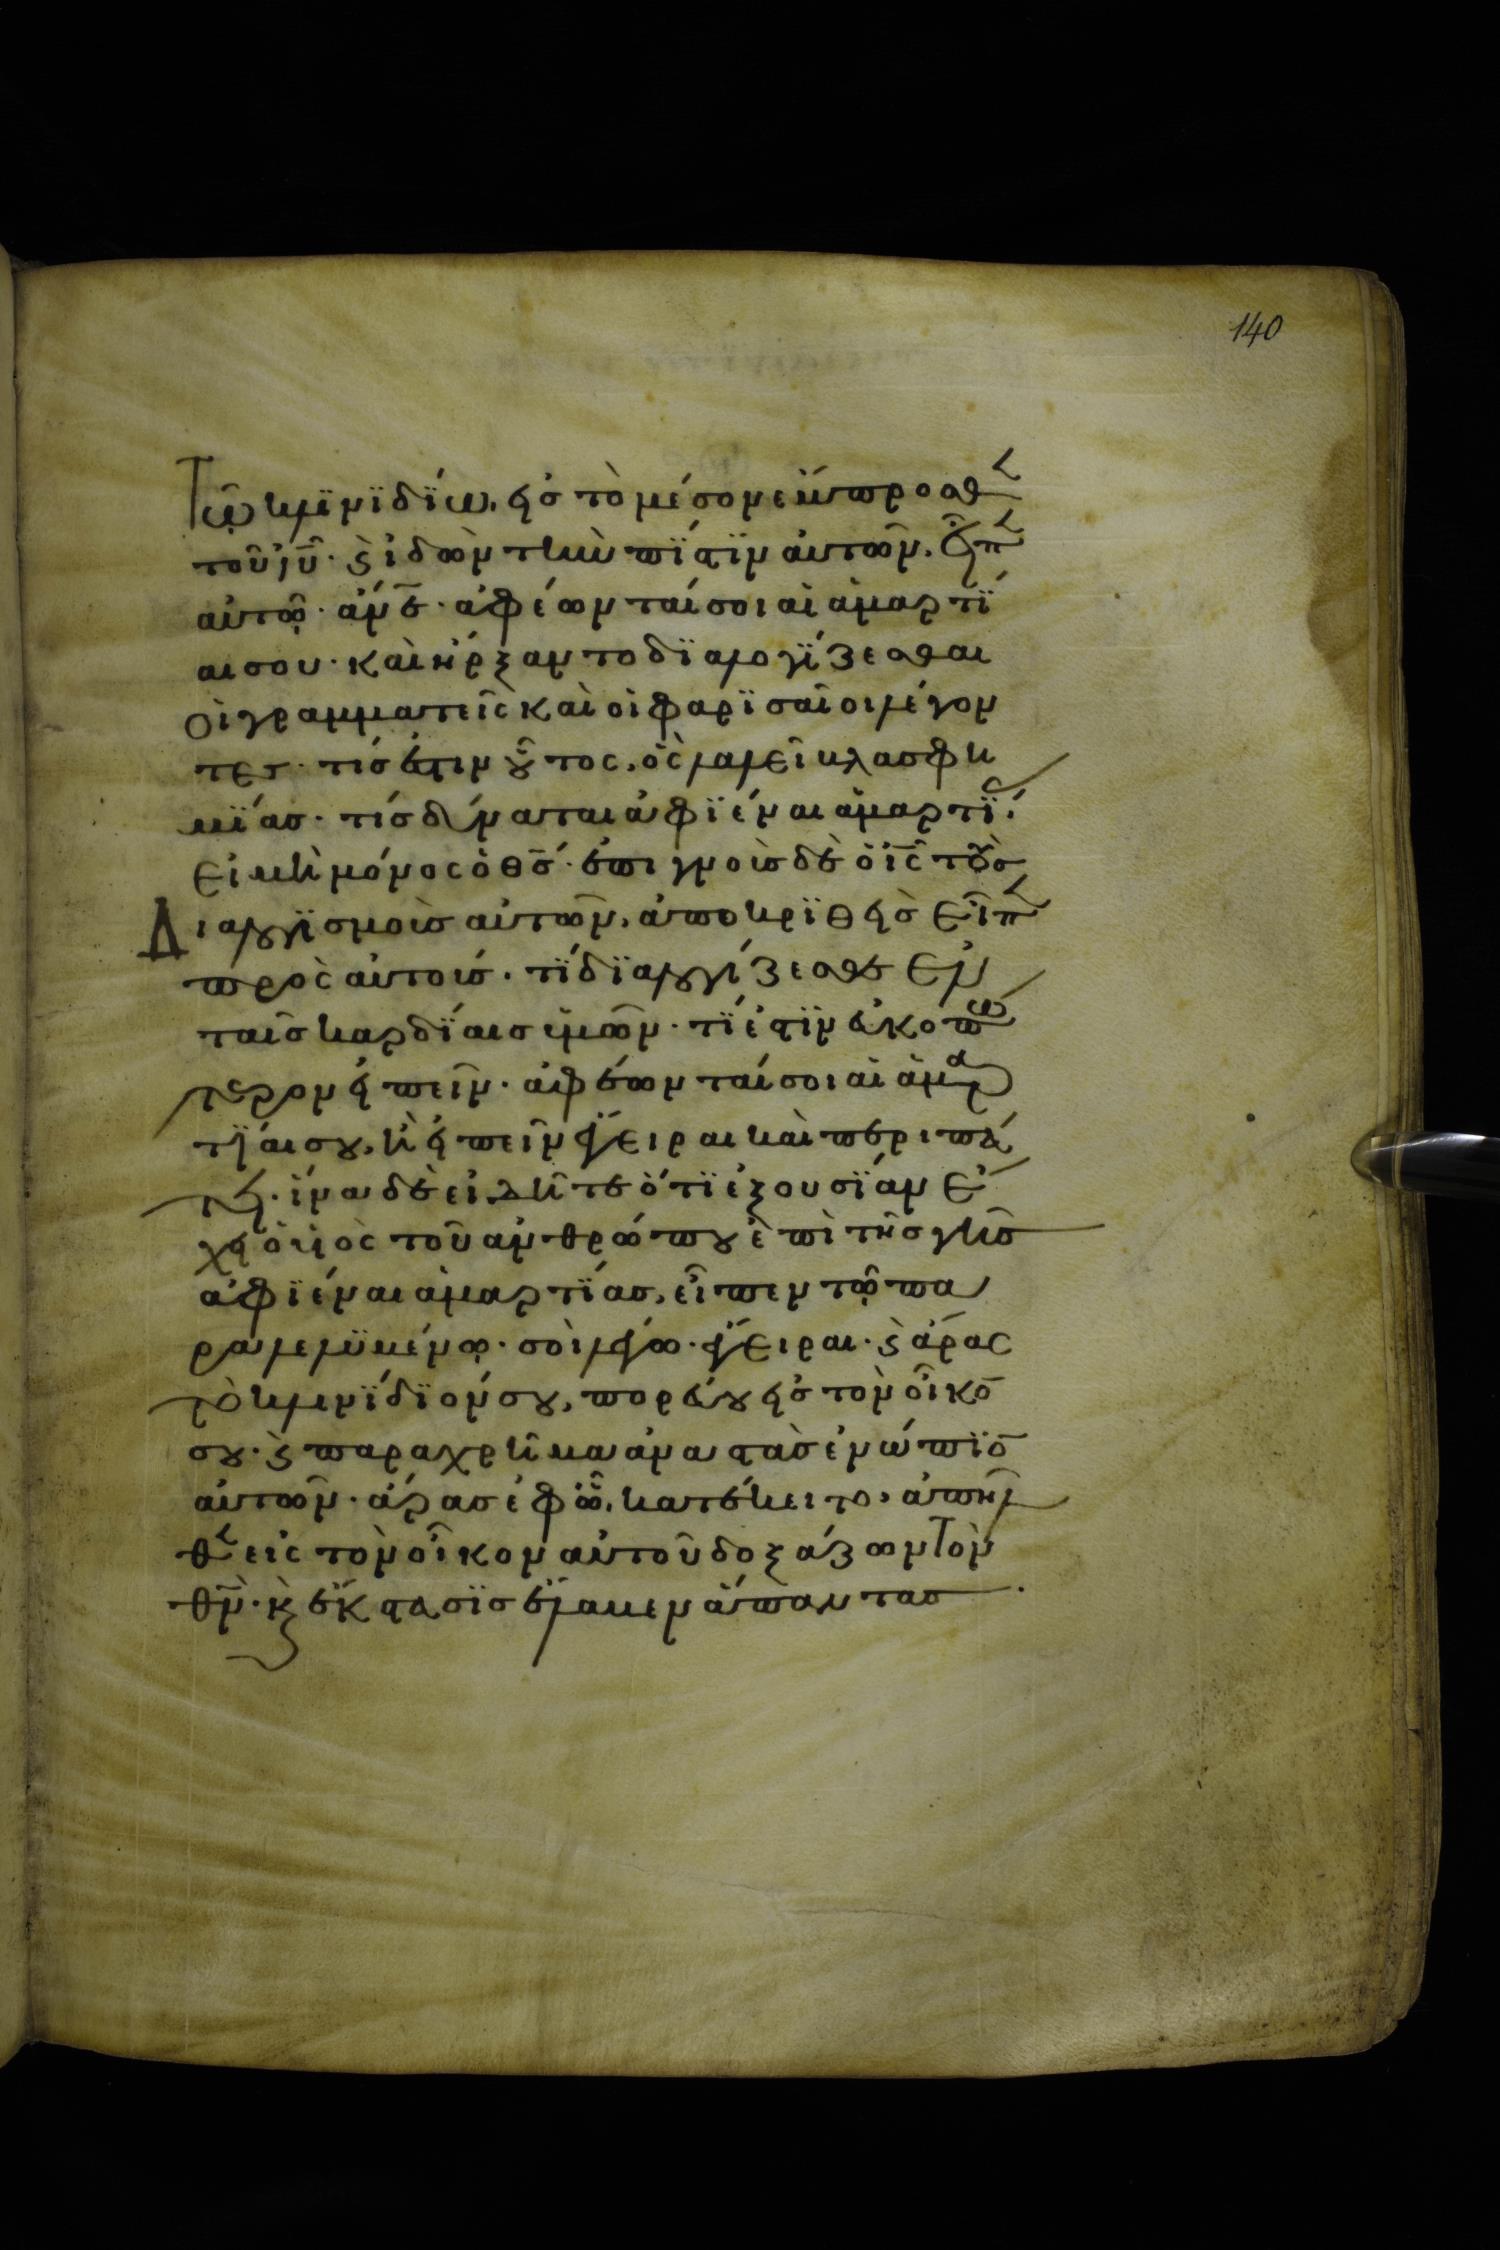 140
Τῷ κλϊνϊδϊω, εἰς τὸ μέσον ἔμπροσθ
τοῦ ἰῦ· ϗ ἰδὼν τὴν πϊστϊν αὐτῶν, εἶπ
αὐτῷ· ἄνε· ἀφέωνταί σοι αἱ ἁμαρτϊ
αι σου· καὶ ἤρξαντο δϊαλογΐζεσθαι
οἱ γραμματεῖς καὶ οἱ φαρϊσαῖοι λέγον
τες· τίς ἐστιν οὗτος, ὃς λαλεῖ βλασφη
μΐας· τίς δύναται ἀφϊέναι ἁμαρτΐ·
εἰ μὴ μόνος ὁ θς· ἐπιγνοὺς δὲ ὁ ἰς τοὺς
Διαλογϊσμοὺς αὐτῶν, ἀποκρϊθεὶς εἶπ
πρὸς αὐτούς· τΐ δϊαλογίζεσθε ἐν
ταῖς καρδΐαις ὑμῶν· τΐ ἐστϊν εὐκοπώ
τερον εἰπεῖν· ἀφέωνταί σοι αἱ ἁμαρ
τΐαι σου, ἢ εἰπεῖν ἔγειραι καὶ περιπά
τει· ἵνα δὲ εἰδῆτε ὅτϊ ἐξουσΐαν ἔ
χει ὁ υἱὸς τοῦ ἀνθρώπου ἐπὶ τῆς γῆς
ἀφϊέναι ἁμαρτΐας, εἶπεν τῷ πα
ραλελϋμένῳ· σοὶ λέγω· ἔγειραι· ϗ ἄρας
τὸ κλινΐδϊόν σου, πορεύου εἰς τὸν οἶκο
σου· ϗ παραχρῆμα ἀναστὰς ἐνώπϊο
αὐτῶν· ἄρας ἐφ' ὧ, κατέκειτο, ἀπῆλ
θ εἰς τὸν οἶκον αὐτοῦ δοξάζων Τὸν
θν· ϗ ἔκστασϊς ἔλαβεν ἅπαντας·